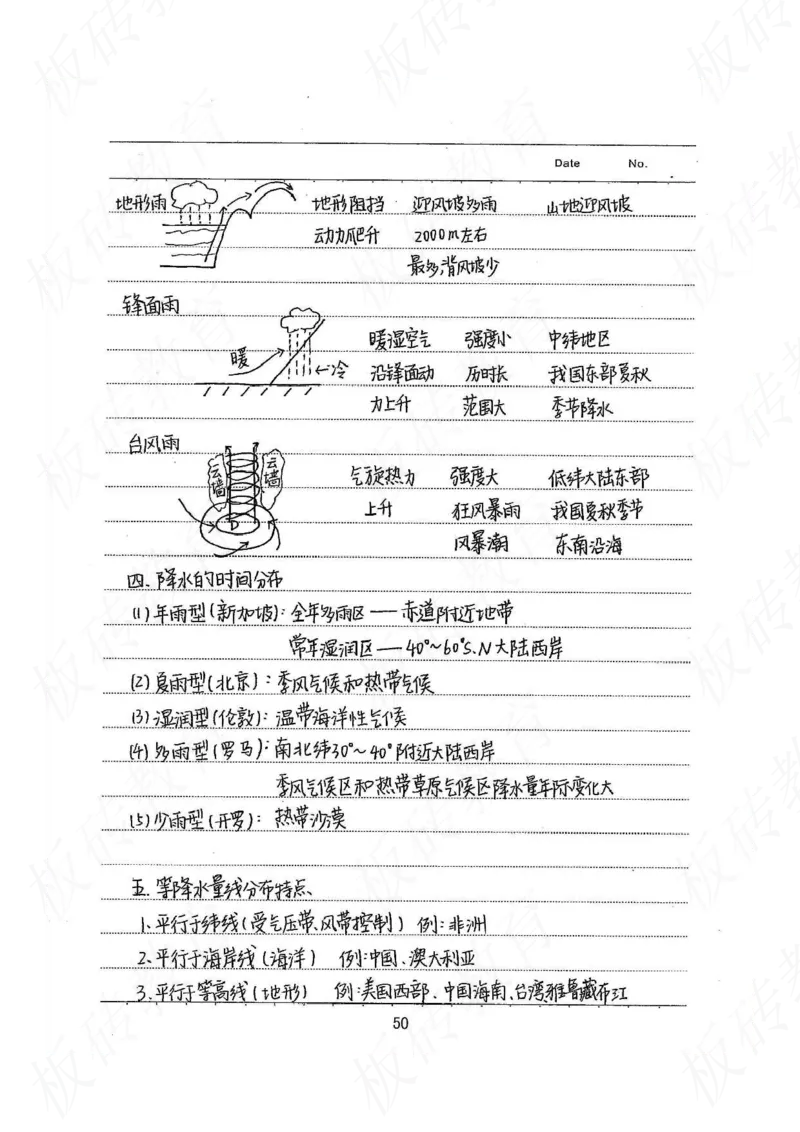 Date No.
地形雨 地形阻挡 迎风坡多雨 山地迎风坡
动力爬升 2000m左右
最多,背风坡少
锋面雨
暖湿空气 强度小 中纬地区
暖 冷 沿锋面动 历时长 我国东部夏秋
力上升 范围大 季节降水
台风雨
云墙 云墙 气旋热力 强度大 低纬大陆东部
上升 狂风暴雨 我国夏秋季节
D 风暴潮 东南沿海
四、降水的时间分布
(1)年雨型(新加坡):全年多雨区——赤道附近地带
常年湿润区——40°~60°S、N大陆西岸
(2)夏雨型(北京):季风气候和热带气候
(3)湿润型(伦敦):温带海洋性气候
(4)多雨型(罗马):南北纬30°~40°附近大陆西岸
季风气候区和热带草原气候区降水量年际变化大
(5)少雨型(开罗):热带沙漠
五.等降水量线分布特点、
1、平行于纬线(受气压带、风带控制) 例:非洲
2、平行于海岸线(海洋) 例:中国、澳大利亚
3、平行于等高线(地形) 例:美国西部、中国海南、台湾雅鲁藏布江
50
板砖教育